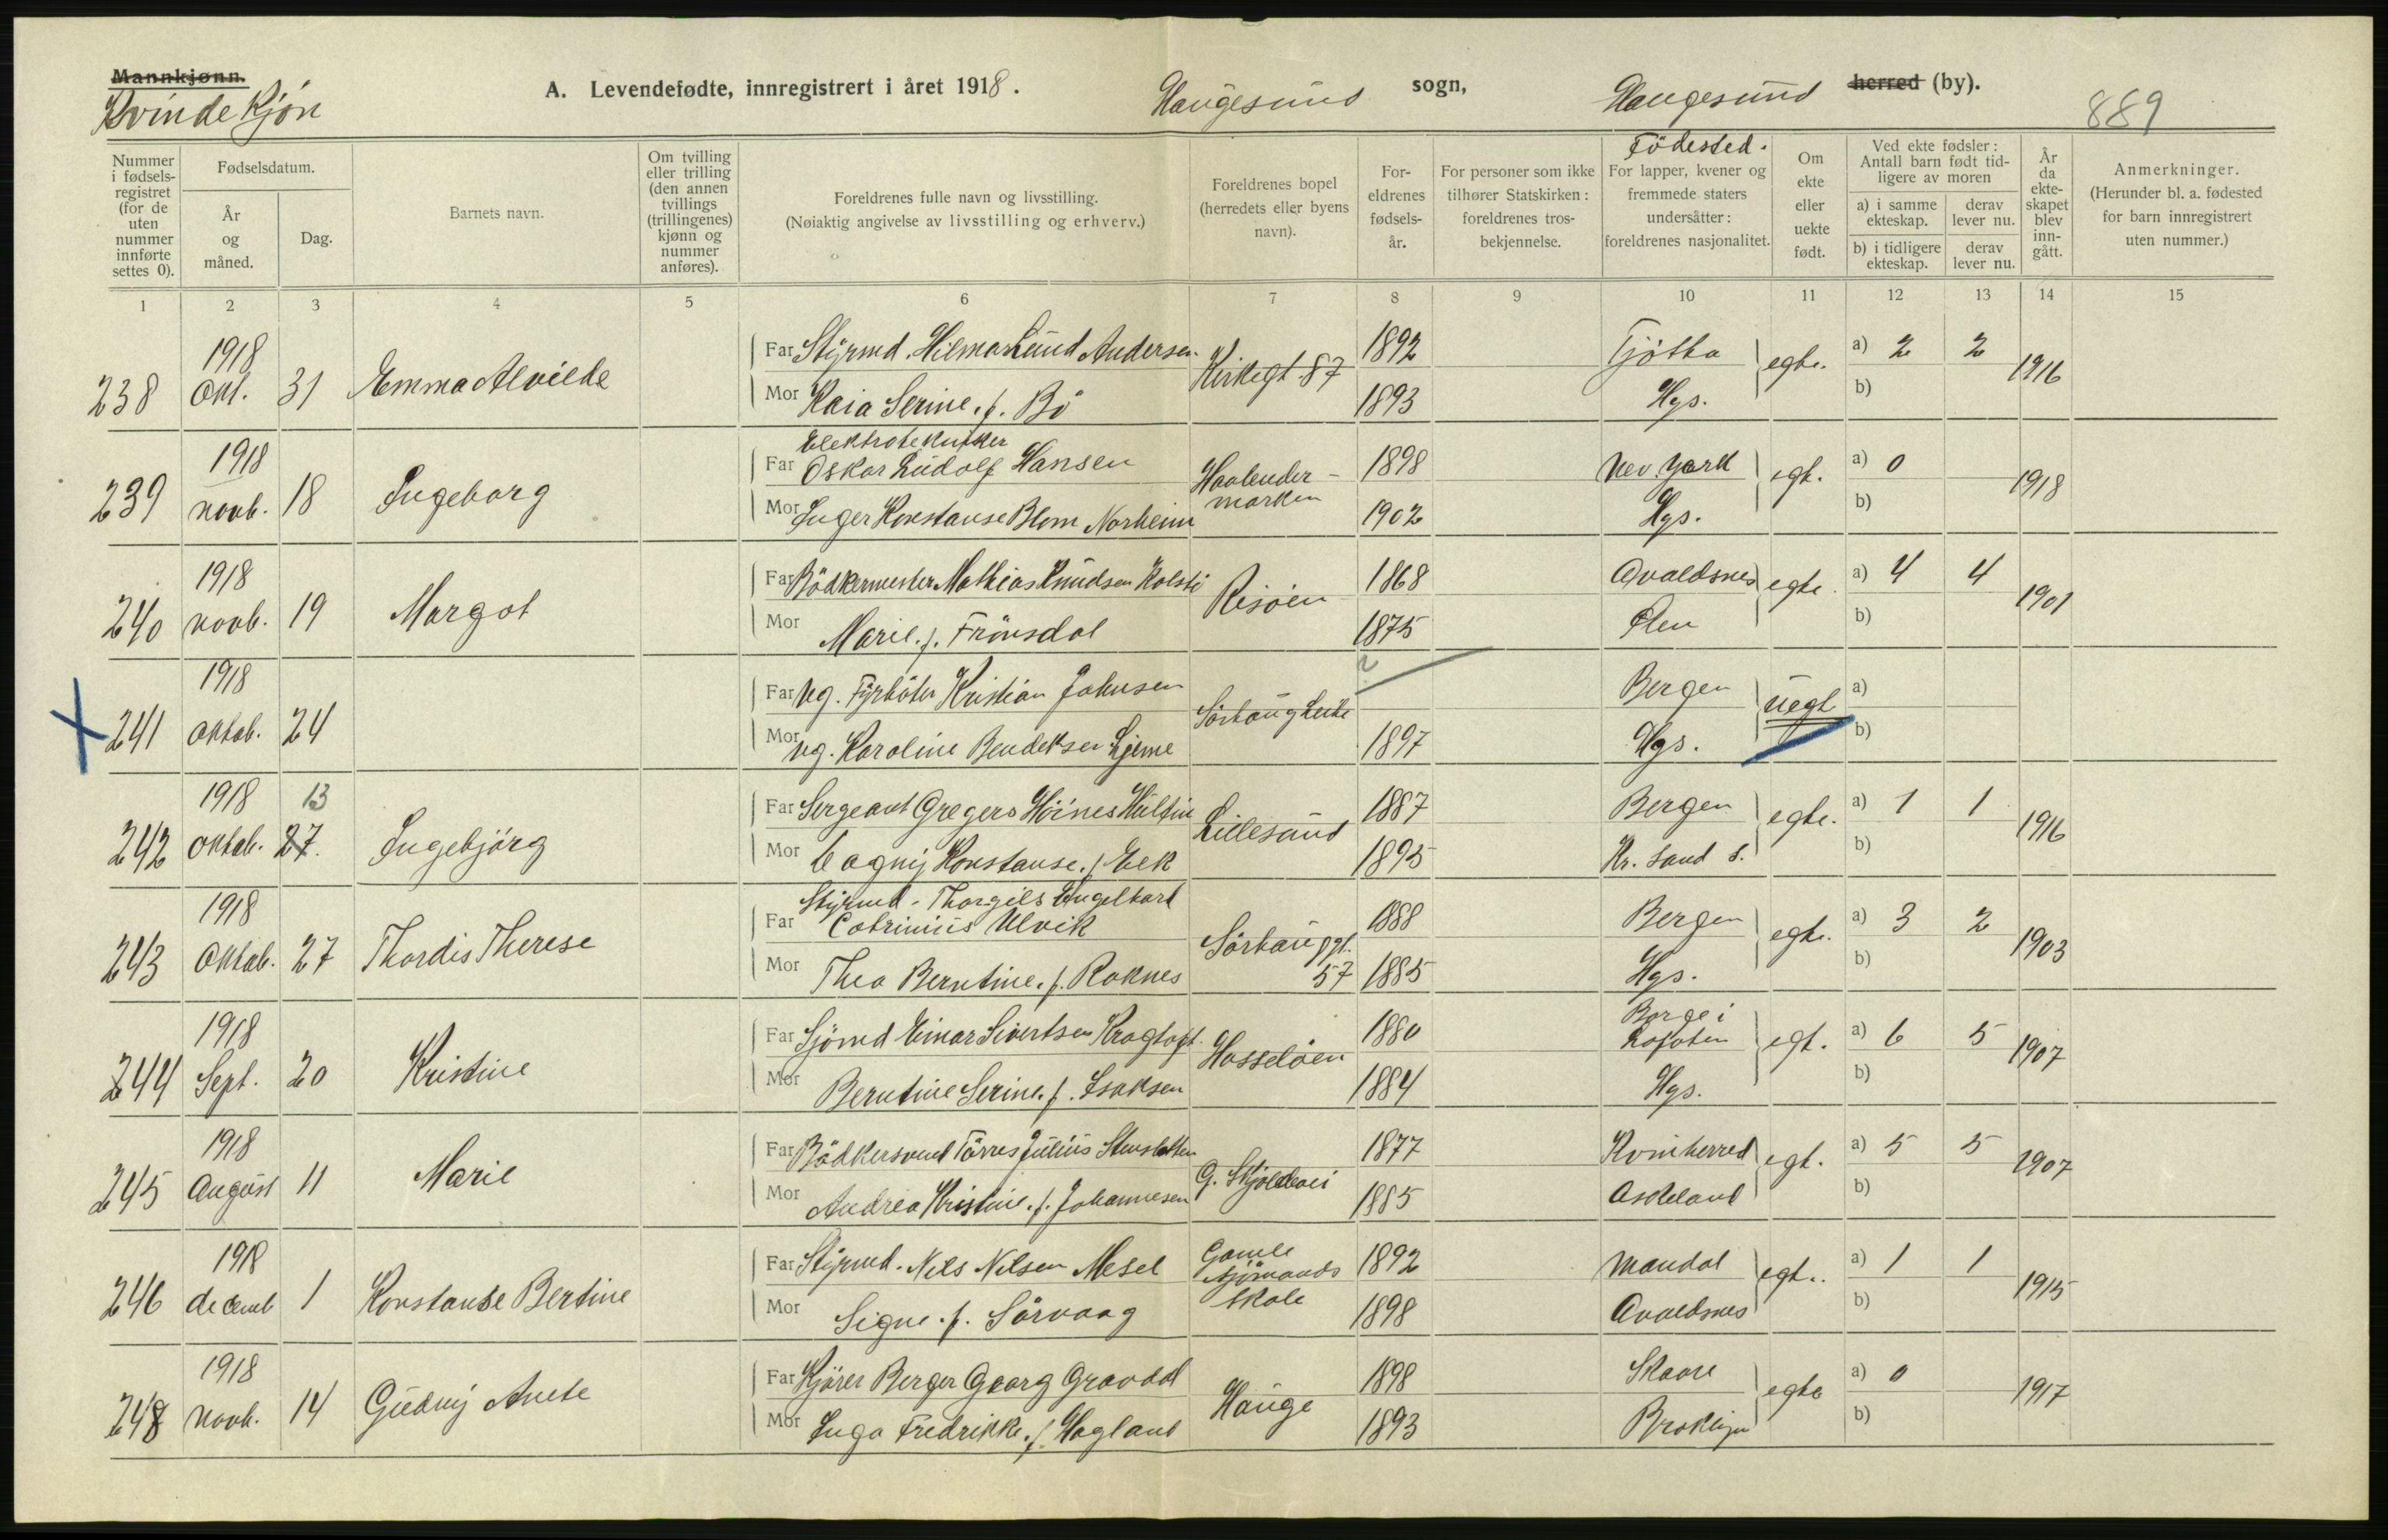 Mannkjønn.
Kvindekjön
A. Levendefødte, innregistrert i året 1918.
Haugesund sogn,
Haugesund herred (by).
889
Nummer i fødselsregistret (for de uten nummer innførte settes 0).
Fødselsdatum.
År og måned.
Dag.
Barnets navn.
Om tvilling eller trilling (den annen tvillings (trillingenes) kjønn og nummer anføres).
Foreldrenes fulle navn og livsstilling.
(Nøiaktig angivelse av livsstilling og erhverv.)
Foreldrenes bopel (herredets eller byens navn).
Foreldrenes fødselsår.
For personer som ikke tilhører Statskirken: foreldrenes trosbekjennelse.
Födested.
For lapper, kvener og fremmede staters undersåtter: foreldrenes nasjonalitet.
Om ekte eller uekte født.
Ved ekte fødsler: Antall barn født tidligere av moren
a) i samme ekteskap.
derav lever nu.
b) i tidligere ekteskap.
derav lever nu.
År da ekteskapet blev inngått.
Anmerkninger.
(Herunder bl. a. fødested for barn innregistrert uten nummer.)
1 2 3 4 5 6 7 8 9 10 11 12 13 14 15
238 1918 Okt. 31 Emma Alvilde
Far Styrmd. Hilmar Lund Andersen Kirkegt. 87 1892 Tjötta egte. a) 2 2 1916
Mor Kaia Serine. f. Bö 1893 Hgs. b)
239 1918 novb. 18 Ingeborg
Elektrotekniker
Far Oskar Ludolf Hansen 1898 New York egt. a) 0 1918
Mor Inger Konstanse Blom Norheim 1902 Hgs. b)
240 1918 novb. 19 Margot
Far Bödkermester Mathias Knudsen Kolstö Risöen 1868 Avaldsnes egte. a) 4 4 1901
Mor Marie. f. Frönsdal 1875 Ölen b)
241 1918 oktob. 24
Far ug. Fyrböter Kristian Johnsen ? Bergen uegt a)
Mor ug. Karoline Bendiksen 1897 Hgs. b)
242 1918 oktob. 27. 13 Ingebjörg
Far Sergeant Gregers Höines Lillesand 1887 Bergen egte. a) 1 1 1916
Mor Konstanse. f Eek 1895 Kr. sand S. b)
243 1918 Oktob. 27 Thordis Therese
Styrmd. Thorgils Engelhart
Far Ulvik Sörhauggt. 57 1888 Bergen egte. a) 3 2 1903
Mor Thea Berntine. f. Roknes 1885 Hgs. b)
244 1918 Sept. 20 Kristine
Far Sjömd Einar Sivertsen Kragtoft. Hasselöen 1880 Borge i Lofoten egt. a) 6 5 1907
Mor Berntine Serine. f. Isaksen 1884 Hgs. b)
245 1918 August 11 Marie
Far Bödkersvend Törres Julius G. Skjoldavei 1877 Kvinherred egt. a) 5 5 1907
Mor Andrea Kristine. f. Johannesen 1885 b)
246 1918 decemb 1 Konstanse Bertine
Far Styrmd. Nils Nilsen Mesel Gamle sjömands skole 1892 Mandal egt.. a) 1 1 1915
Mor Signe. f. Sörvaag 1898 Avaldsnes b)
248 1918 Novb. 14 Gudny Anete
Far Kjörer Berger Georg Gravdal Hauge 1898 Skaare egte a) 0 1917
Mor Inga Fredrikke. f. Hagland 1893 Broklyn b)